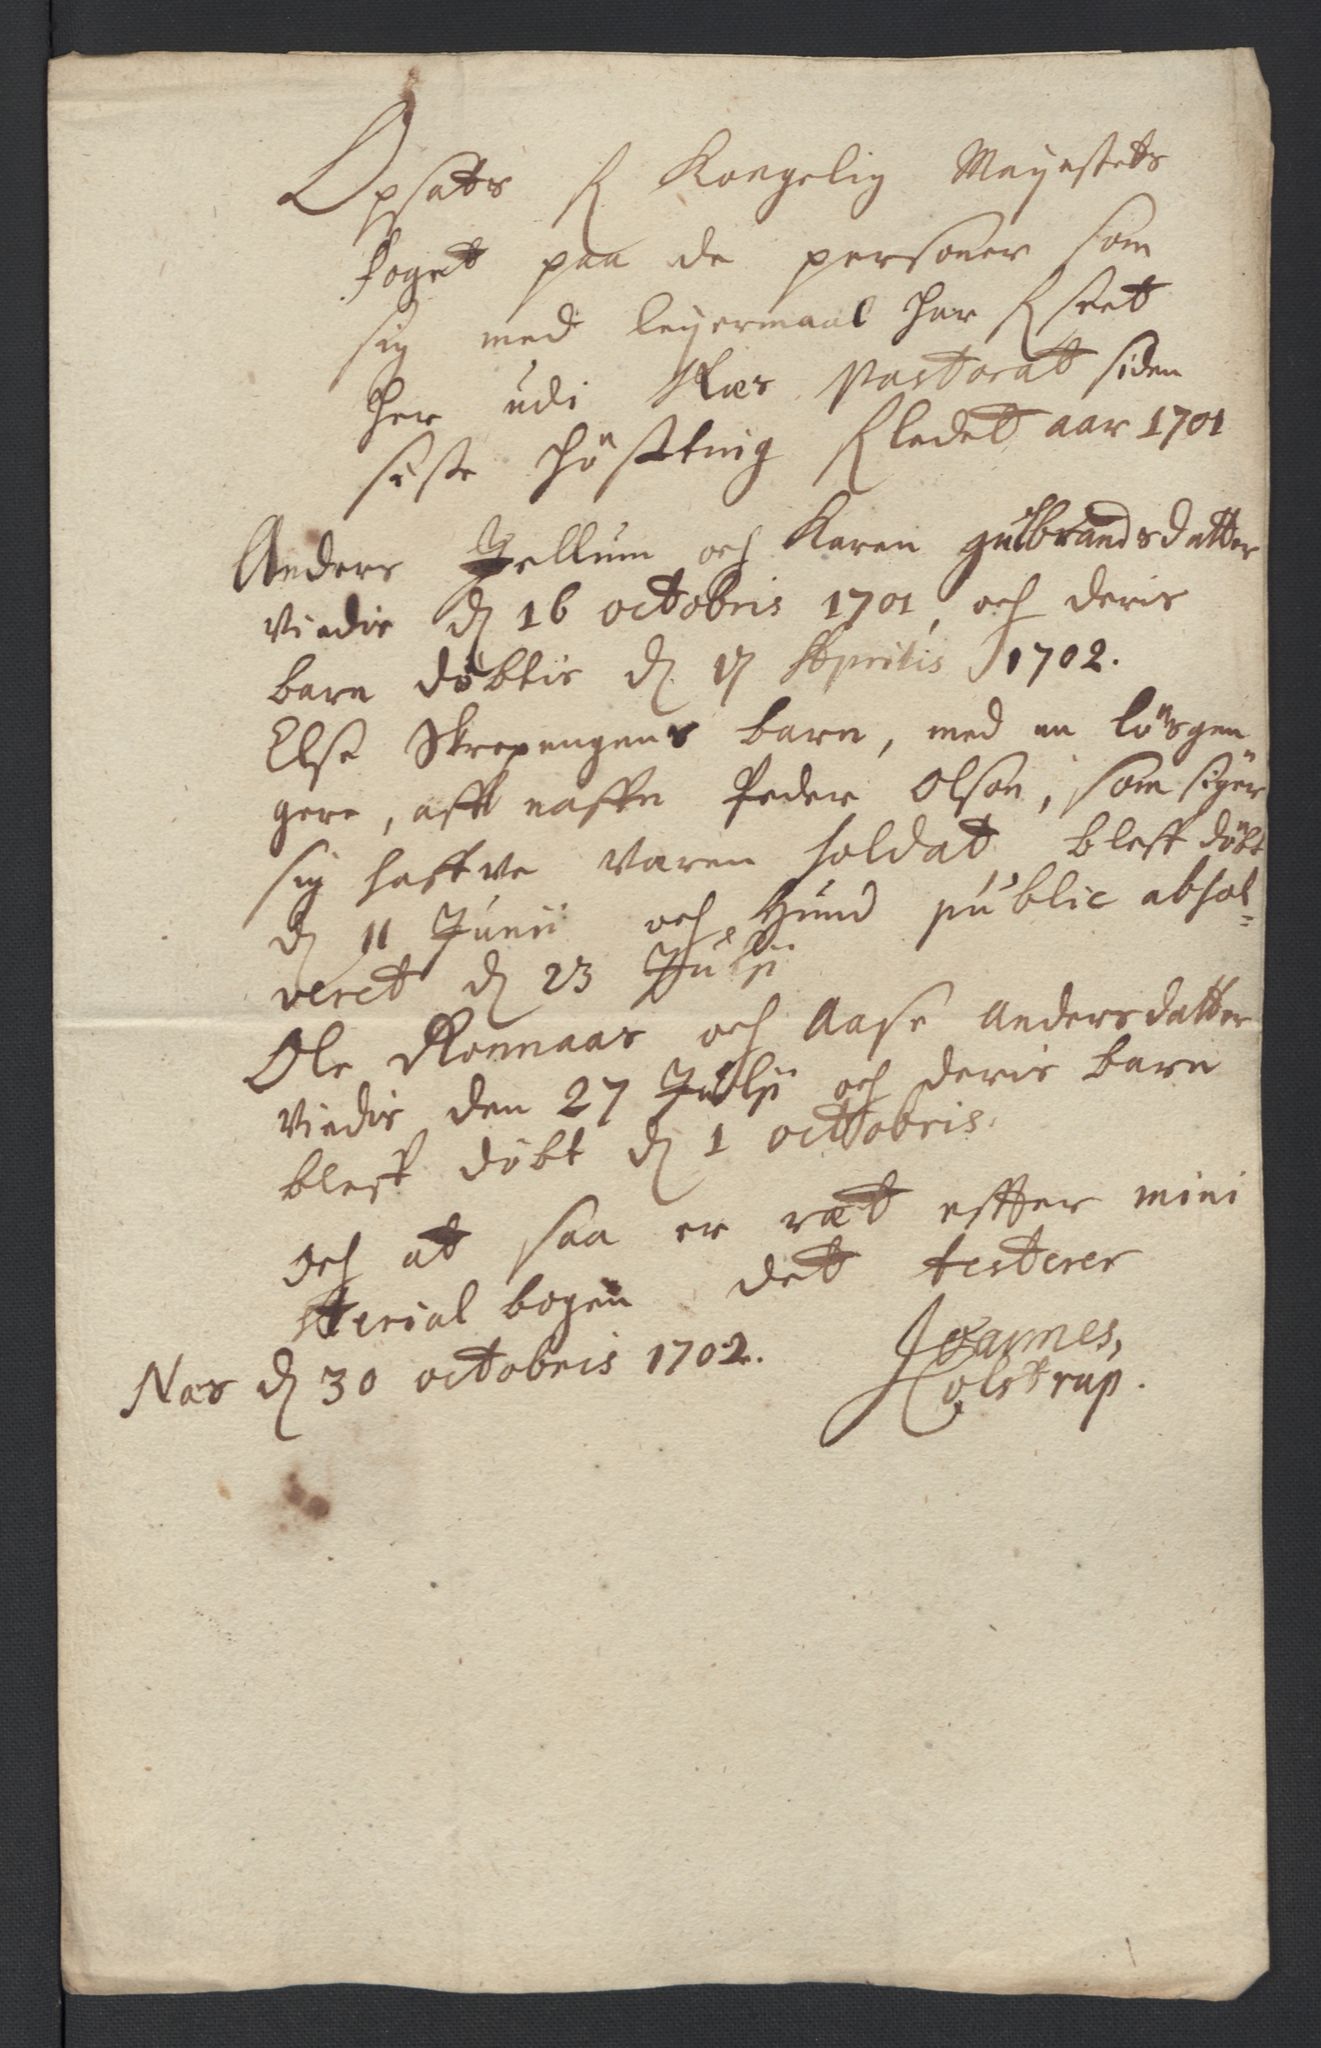 Opsats f Kongelig Mayestets
foget paa de personer som
sig med leyermaal har f seet
her udi Næs Pastorat siden
siste höstting f ledet aar 1701
Anders Jellum och Karen gulbrandsdatter
viedis d 16 octobris 1701, och deris
barn döbtis d 17 Aprilis 1702.
Else Skrepengens barn, med en lösgen
gere, aff naffn Peder Olson, som siger
sig haffve varen soldat bleff döbt
d 11 Junii och hund public absol=
veret d 23 Julii
Ole Ronnaas och Aase Andersdatter
viedis den 27 Julii och deris barn
bleff döbt d 1 octobris.
Och at saa er ræt effter mini
sterial bogen det testerer
Næs d 30 octobris 1702. Joannes
Colstrup.